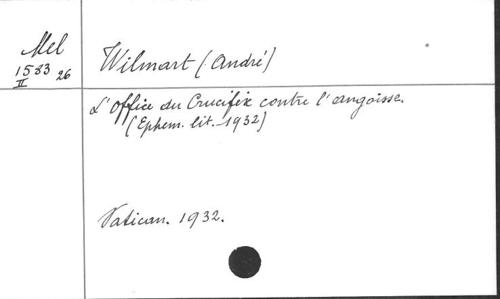 Mel
1583 26
II
Wilmart (André)
L'Office du Crucifix contre l'angoisse.
(Ephem. lit. 1932)
Vatican. 1932.